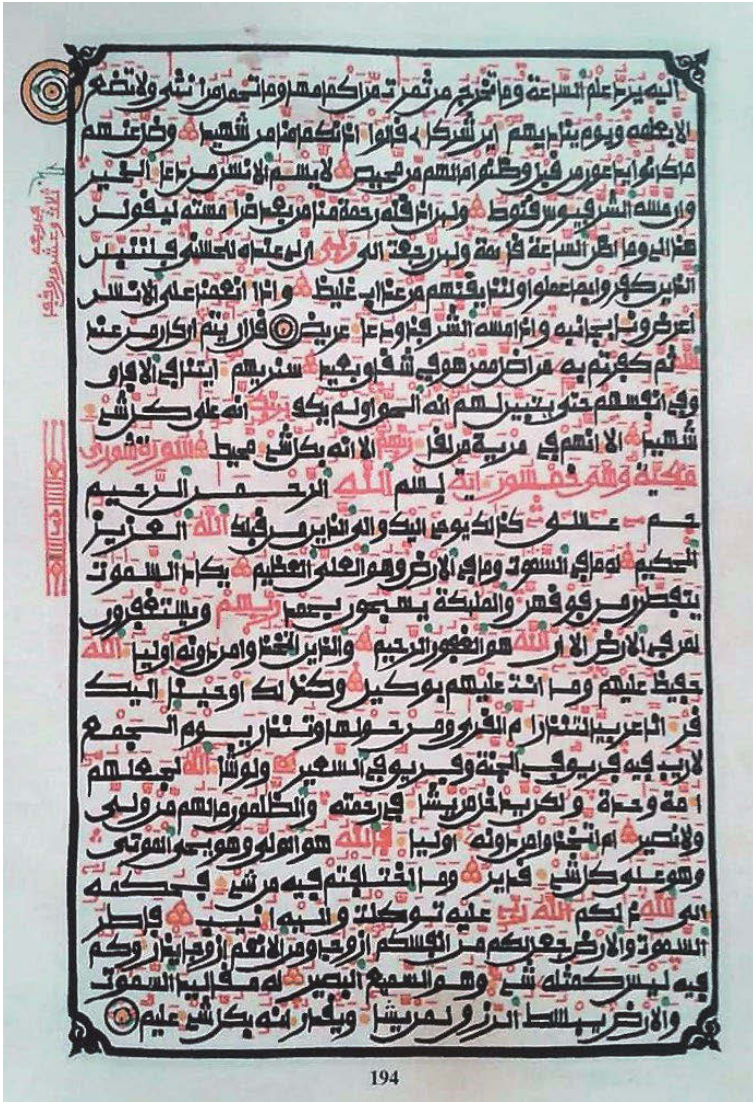 اليه يرد علم الساعة وما تخرج من ثمرت من اكمامها وما تحمل من انثى ولا تضع
الا بعلمه ويوم يناديهم اين شركاءى قالوا اذنك ما منا من شهيد وضل عنهم
ما كانوا يدعون من قبل وظنوا ما لهم من محيص لا يسم الانسن من دعاء الخير
وان مسه الشر فيوس قنوط ولين اذقنه رحمة منا من بعد ضراء مسته ليقولن
هذا لى وما اظن الساعة قايمة ولين رجعت الى ربى ان لى عنده للحسنى فلننبين
الذين كفروا بما عملوا ولنذيقنهم من عذاب غليظ واذا انعمنا على الانسن
اعرض ونا بجانبه واذا مسه الشر فذو دعاء عريض قل اريتم ان كان من عند
الله ثم كفرتم به من اضل ممن هو في شقاق بعيد سنريهم ايتنا في الافاق
وفي انفسهم حتى يتبين لهم انه الحق اولم يكف بربك انه على كل شيء
شهيد الا انهم في مرية من لقاء ربهم الا انه بكل شيء محيط سورة شورى
مكية وهي خمسون اية بسم الله الرحمن الرحيم
حم عسق كذلك يوحى اليك والى الذين من قبلك الله العزيز
الحكيم له ما في السموت وما في الارض وهو العلى العظيم يكاد السموت
يتفطرن من فوقهن والمليكة يسبحون بحمد ربهم ويستغفرون
لمن في الارض الا ان الله هو الغفور الرحيم والذين اتخذوا من دونه اولياء الله
حفيظ عليهم وما انت عليهم بوكيل وكذلك اوحينا اليك
قرانا عربيا لتنذر ام القرى ومن حولها وتنذر يوم الجمع
لا ريب فيه فريق في الجنة وفريق في السعير ولو شاء الله لجعلهم
امة وحدة ولكن يدخل من يشاء في رحمته والظلمون ما لهم من ولى
ولا نصير ام اتخذوا من دونه اولياء فالله هو الولى وهو يحى الموتى
وهو على كل شيء قدير وما اختلفتم فيه من شيء فحكمه
الى الله ذلكم الله ربى عليه توكلت واليه انيب فاطر
السموت والارض جعل لكم من انفسكم ازوجا ومن الانعم ازوجا يذروكم
فيه ليس كمثله شيء وهو السميع البصير له مقاليد السموت
والارض يبسط الرزق لمن يشاء ويقدر انه بكل شيء عليم
194